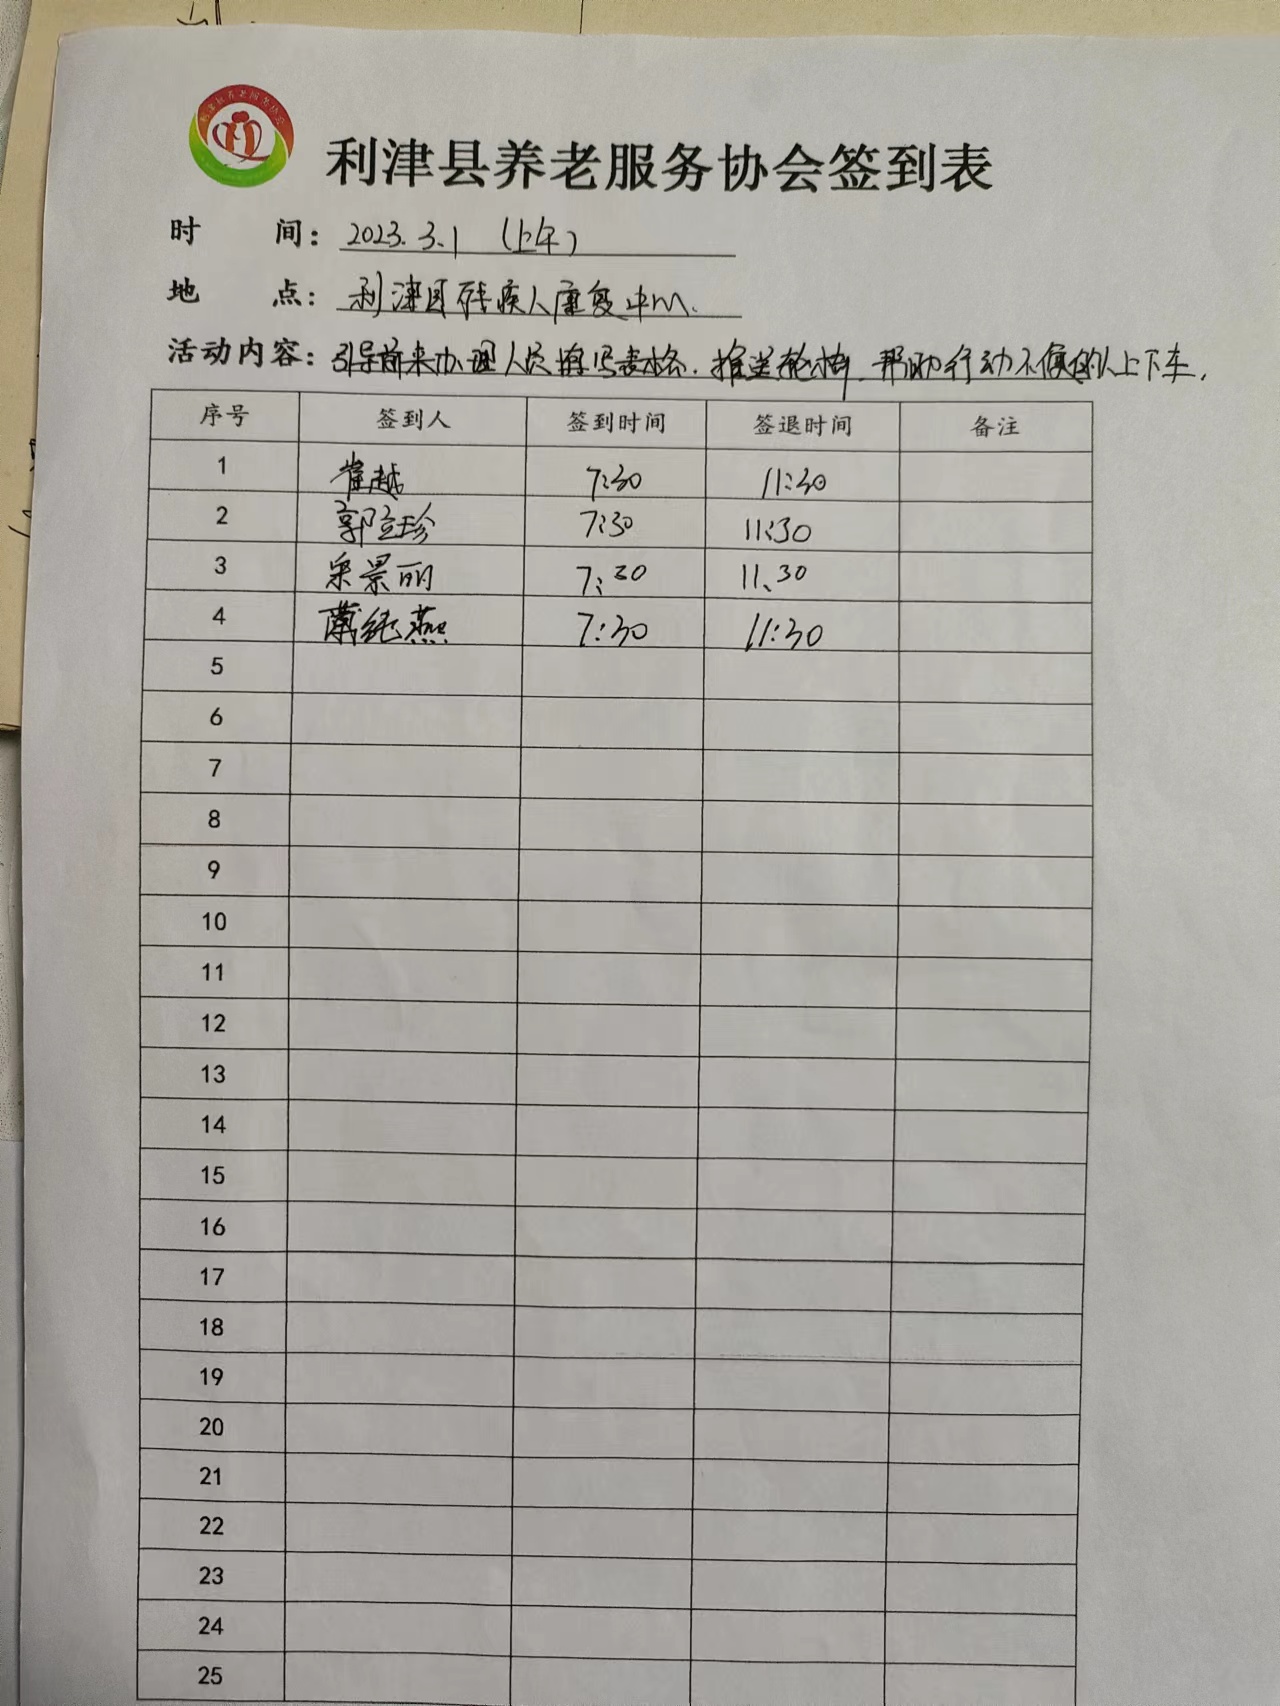 利津县养老服务协会
利津县养老服务协会签到表
时 间：2023.3.1 （上午）
地 点：利津县残疾人康复中心.
活动内容：引导前来办理人员填写表格．推送轮椅．帮助行动不便的人上下车．
序号 签到人 签到时间 签退时间 备注
1 崔越 7:30 11:30
2 郭立珍 7:30 11:30
3 景丽 7:30 11:30
4 燕 7:30 11:30
5
6
7
8
9
10
11
12
13
14
15
16
17
18
19
20
21
22
23
24
25